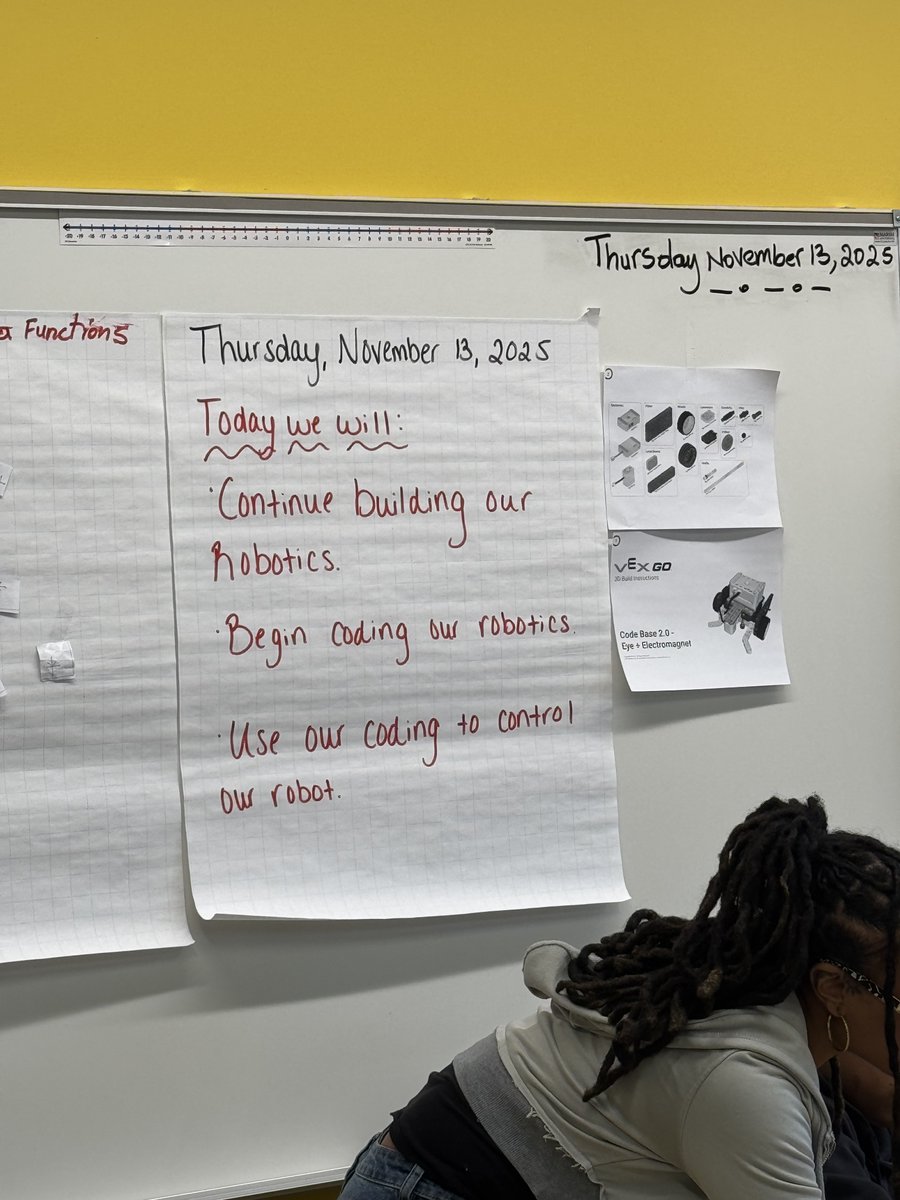 Thursday November 13, 2025
Functions
Thursday, November 13, 2025
Today we will:
·Continue building our
Robotics.
·Begin coding our robotics.
·Use our coding to control
our robot.
VEX GO
3D Build Instructions
Code Base 2.0 -
Eye + Electromagnet